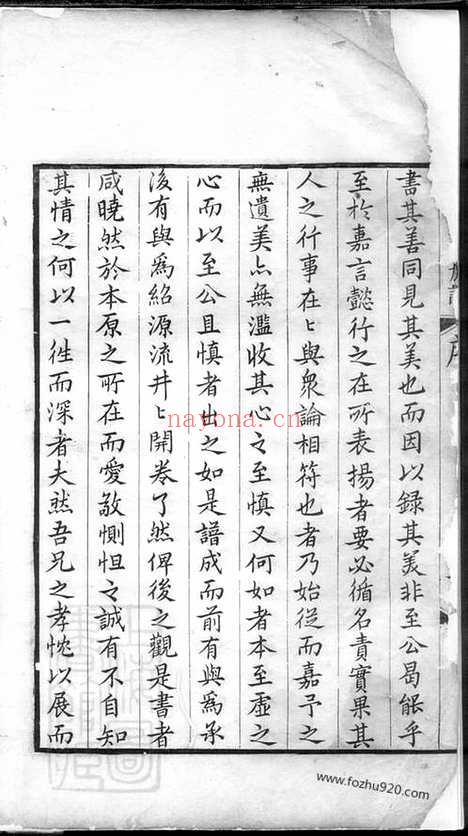 書其善同見其美也而因以錄其美非至公曷能乎
至於嘉言懿行之在所表揚者要必循名責實果其
人之行事在在與衆論相符也者乃始從而嘉予之
無遺美亦無濫收其心之至慎又何如者本至虛之
心而以至公且慎者出之如是譜成而前有與爲承
後有與爲紹源流井井開卷了然俾後之觀是書者
咸曉然於本原之所在而愛敬惻怛之誠有不自知
其情之何以一往而深者夫然吾兄之孝忱以展而
nayona.cn
www.fozhu920.com